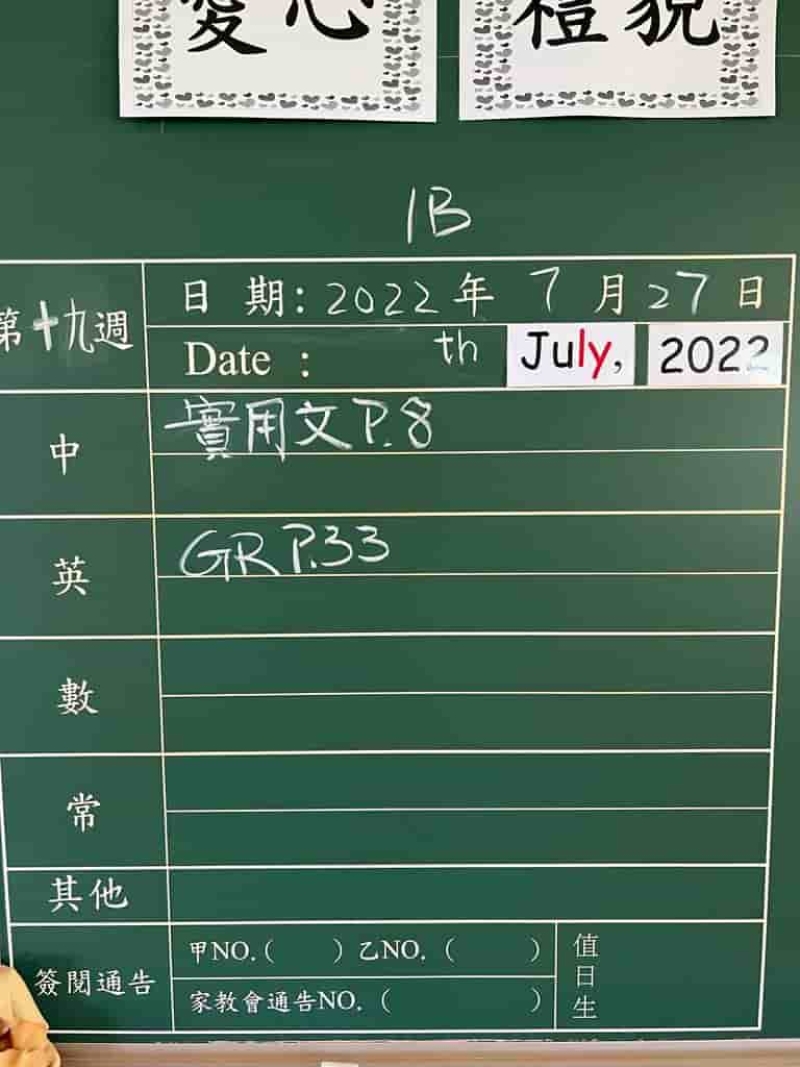 愛心
禮貌
1B
第十九週
日 期: 2022 年 7 月 27 日
Date : th July, 2022
中
實用文 P.8
英
GR P.33
數
常
其他
簽閱通告
甲NO. ( ) 乙NO. ( )
家教會通告NO. ( )
值日生